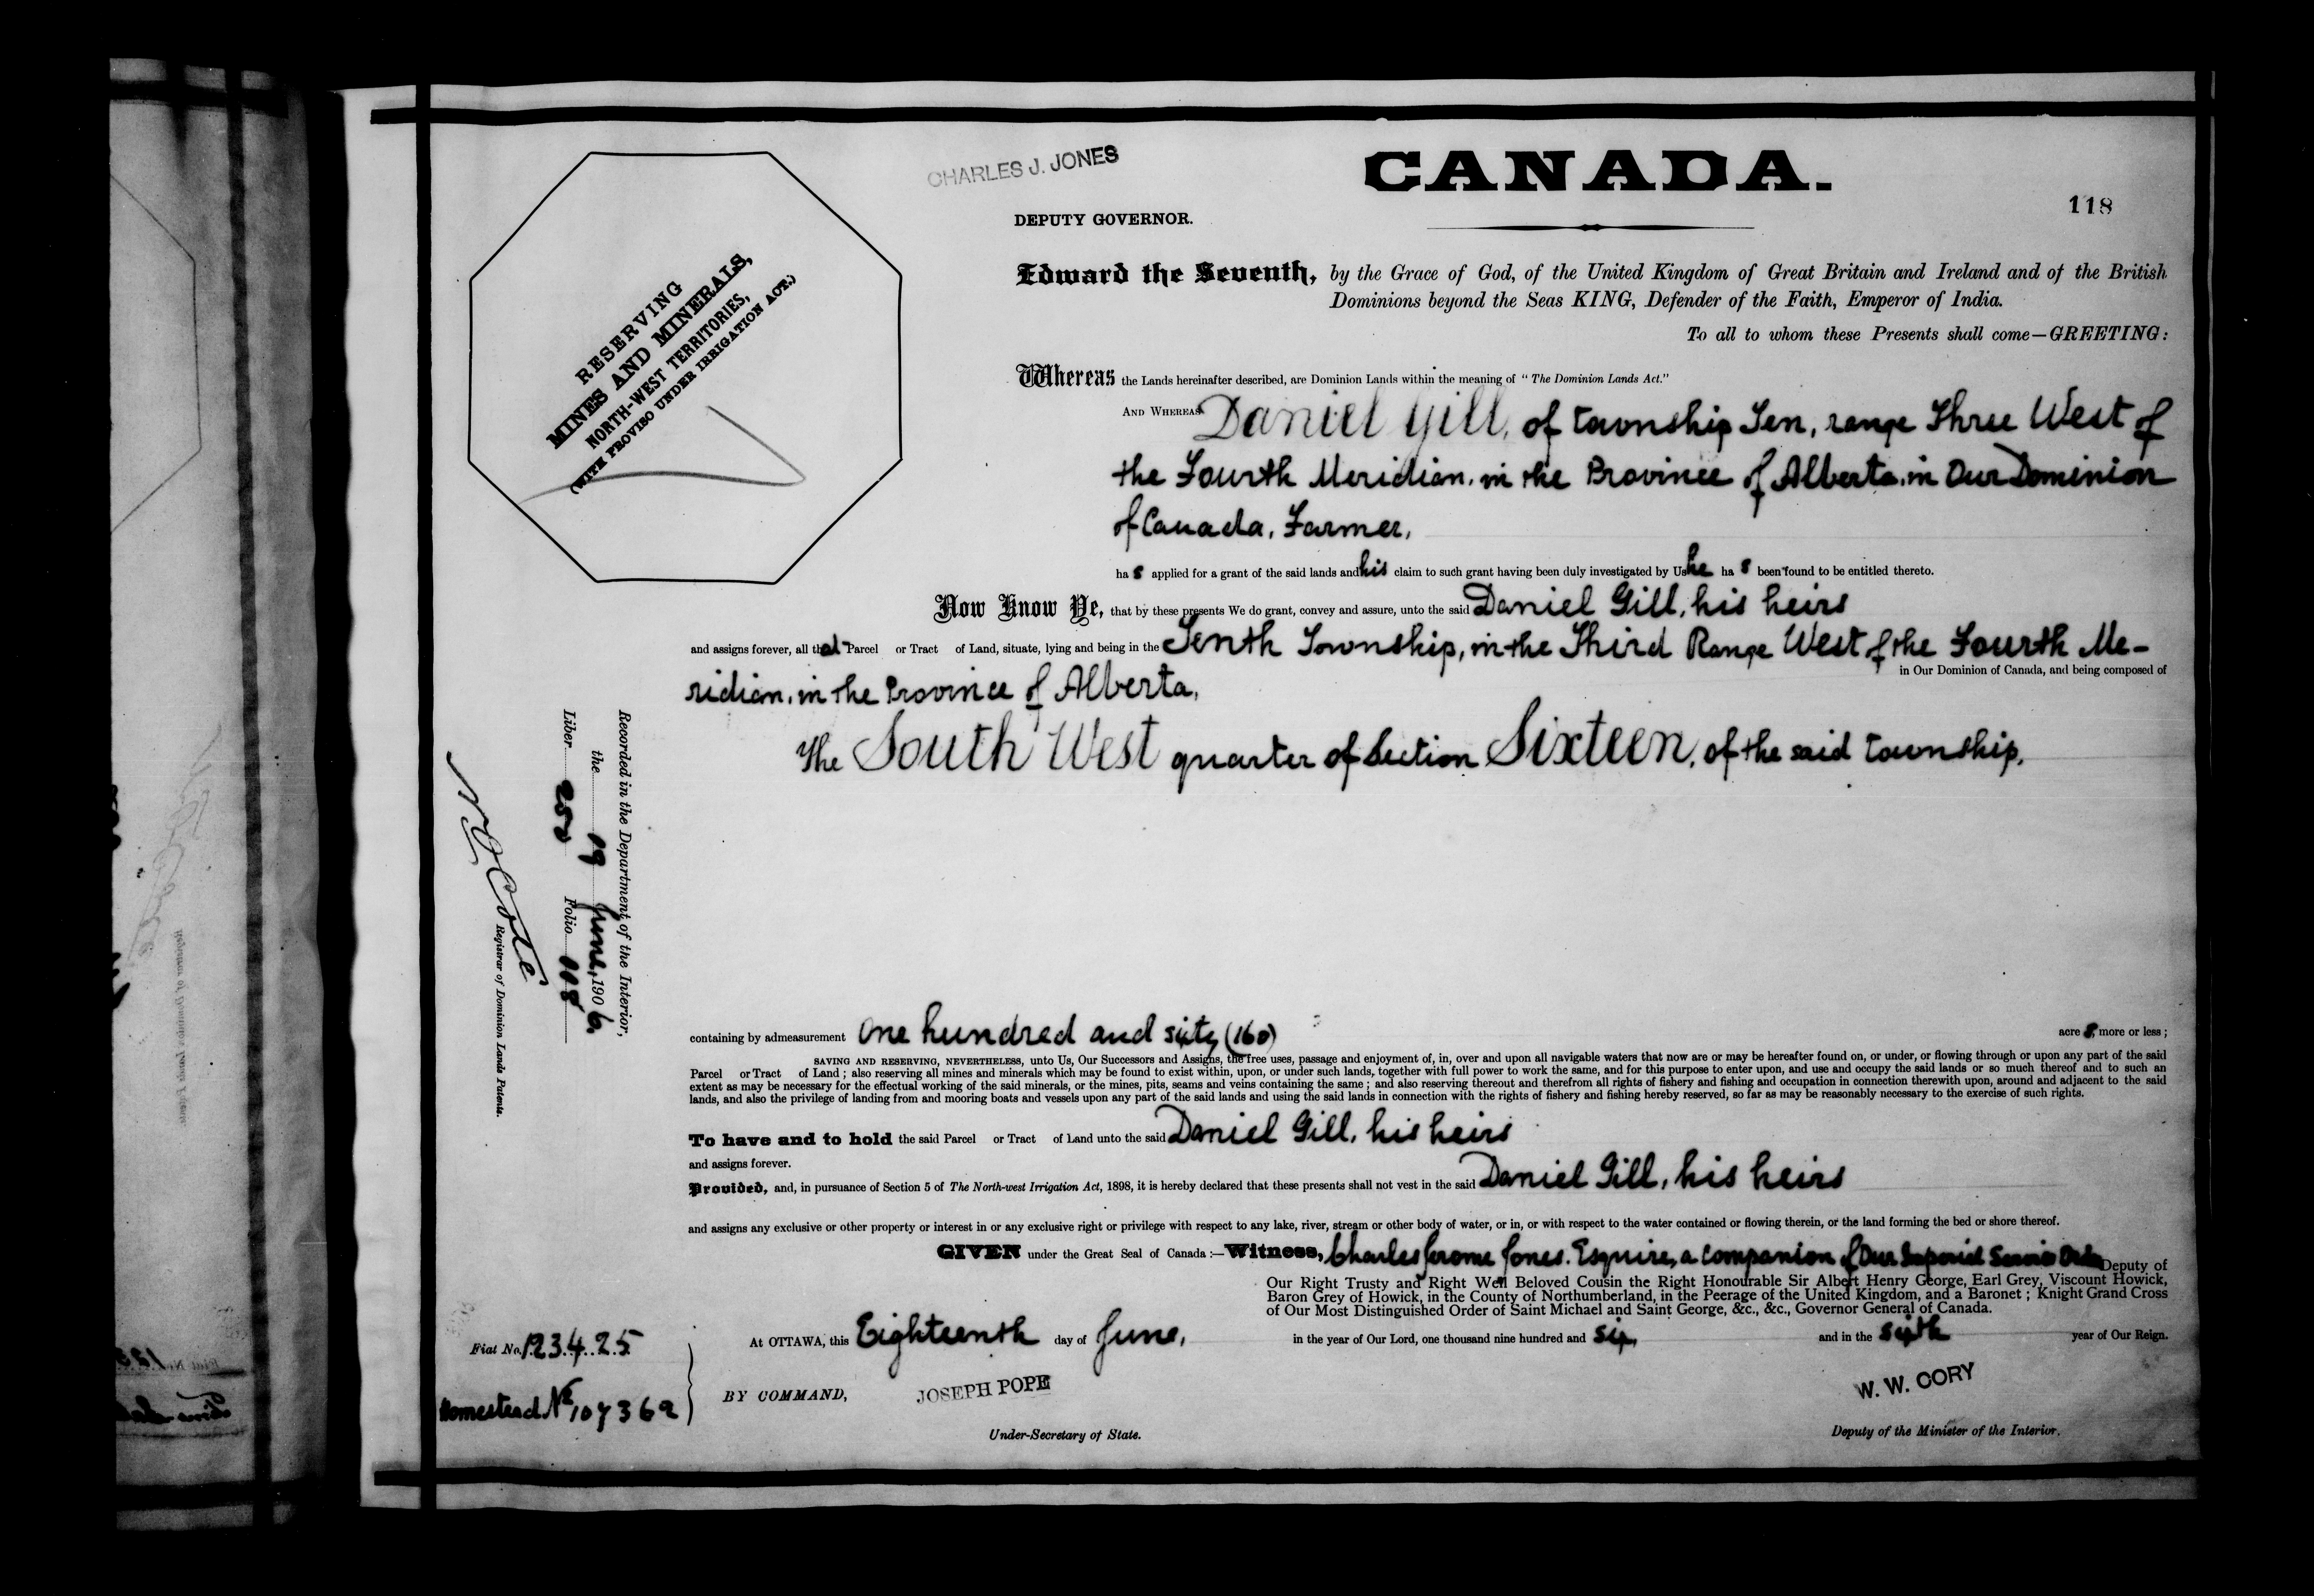 CHARLES J. JONES
CANADA.
118
DEPUTY GOVERNOR.
RESERVING
MINES AND MINERALS,
NORTH-WEST TERRITORIES,
(WITH PROVISO UNDER IRRIGATION ACT.)
Edward the Seventh, by the Grace of God, of the United Kingdom of Great Britain and Ireland and of the British
Dominions beyond the Seas KING, Defender of the Faith, Emperor of India.
To all to whom these Presents shall come—GREETING:
Whereas the Lands hereinafter described, are Dominion Lands within the meaning of "The Dominion Lands Act."
AND WHEREAS Daniel Gill, of township Ten, range Three West of
the Fourth Meridian, in the Province of Alberta, in Our Dominion
of Canada, Farmer,
has applied for a grant of the said lands and his claim to such grant having been duly investigated by Us he has been found to be entitled thereto.
Now Know Ye, that by these presents We do grant, convey and assure, unto the said Daniel Gill, his heirs
and assigns forever, all that Parcel or Tract of Land, situate, lying and being in the Tenth Township, in the Third Range West of the Fourth Me-
in Our Dominion of Canada, and being composed of
ridian, in the Province of Alberta,
The South West quarter of Section Sixteen, of the said township,
Recorded in the Department of the Interior,
the 19 June, 1906.
Liber 250 Folio 118
N O Coté
Registrar of Dominion Lands Patents.
containing by admeasurement One hundred and sixty (160) acres, more or less;
SAVING AND RESERVING, NEVERTHELESS, unto Us, Our Successors and Assigns, the free uses, passage and enjoyment of, in, over and upon all navigable waters that now are or may be hereafter found on, or under, or flowing through or upon any part of the said
Parcel or Tract of Land; also reserving all mines and minerals which may be found to exist within, upon, or under such lands, together with full power to work the same, and for this purpose to enter upon, and use and occupy the said lands or so much thereof and to such an
extent as may be necessary for the effectual working of the said minerals, or the mines, pits, seams and veins containing the same; and also reserving thereout and therefrom all rights of fishery and fishing and occupation in connection therewith upon, around and adjacent to the said
lands, and also the privilege of landing from and mooring boats and vessels upon any part of the said lands and using the said lands in connection with the rights of fishery and fishing hereby reserved, so far as may be reasonably necessary to the exercise of such rights.
To have and to hold the said Parcel or Tract of Land unto the said Daniel Gill, his heirs
and assigns forever.
Provided, and, in pursuance of Section 5 of The North-west Irrigation Act, 1898, it is hereby declared that these presents shall not vest in the said Daniel Gill, his heirs
and assigns any exclusive or other property or interest in or any exclusive right or privilege with respect to any lake, river, stream or other body of water, or in, or with respect to the water contained or flowing therein, or the land forming the bed or shore thereof.
GIVEN under the Great Seal of Canada:—Witness, Charles Jerome Jones, Esquire, a Companion of Our Imperial Service Order Deputy of
Our Right Trusty and Right Well Beloved Cousin the Right Honourable Sir Albert Henry George, Earl Grey, Viscount Howick,
Baron Grey of Howick, in the County of Northumberland, in the Peerage of the United Kingdom, and a Baronet; Knight Grand Cross
of Our Most Distinguished Order of Saint Michael and Saint George, &c., &c., Governor General of Canada.
At OTTAWA, this Eighteenth day of June, in the year of Our Lord, one thousand nine hundred and six, and in the sixth year of Our Reign.
Fiat No. 123425
Homestead No 107369
BY COMMAND,
JOSEPH POPE
Under-Secretary of State.
W. W. CORY
Deputy of the Minister of the Interior.